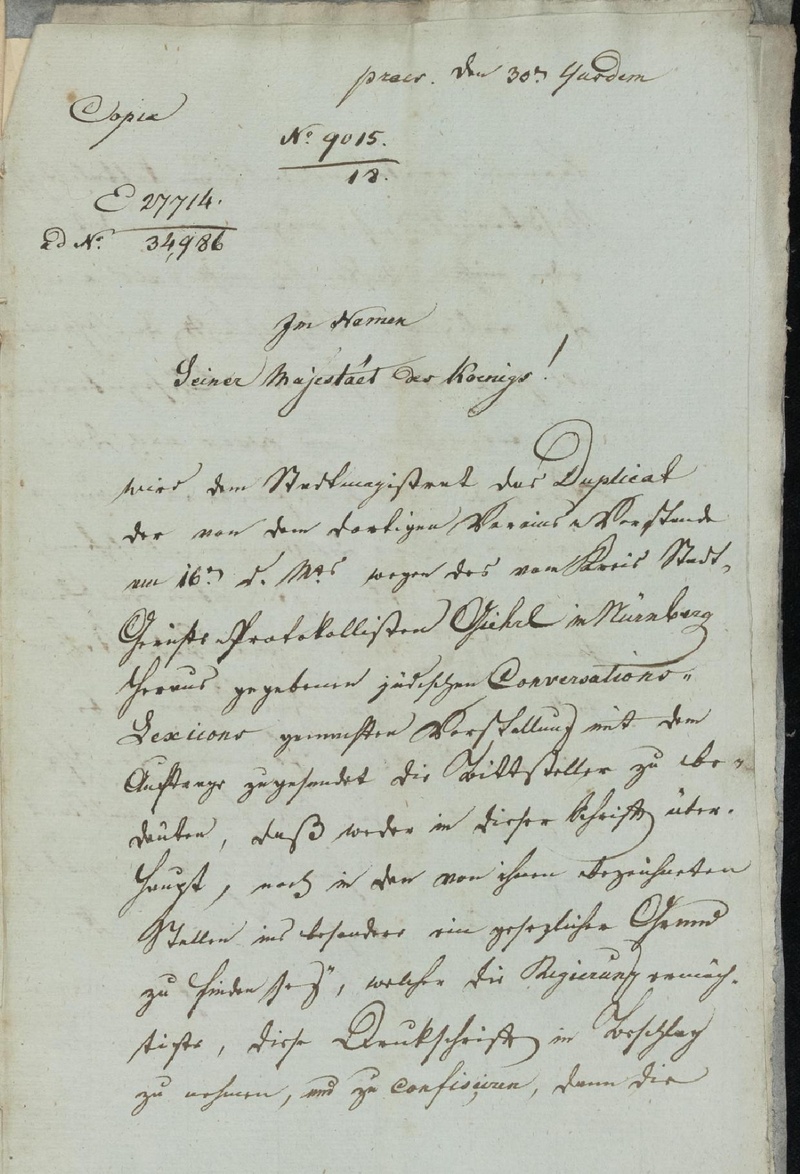 praes. den 30n ejusdem
Copia
No 9015.
18.
E 27714.
ad No 34,986
Im Namen
Seiner Majestaet des Koenigs!
wird dem Stadtmagistrat das Duplicat
der von dem dortigen Vereins-Vorstande
am 16n d. Mts wegen des vom Kreis Stadt-
Gerichts-Protokollisten Giehrl in Nürnberg
heraus gegebenen jüdischen Conversations-
Lexicons gemachten Vorstellung mit dem
Auftrage zugesendet die Bittsteller zu be-
deuten, daß weder in dieser Schrift über-
haupt, noch in den von ihnen bezeichneten
Stellen ins besondere ein gesezlicher Grund
zu finden sey, welcher die Regierung ermäch-
tigte, diese Drukschrift in Beschlag
zu nehmen, und zu confisciren, denn die